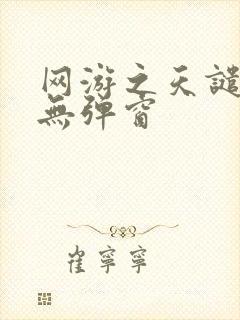 网游之天譴
無弹窗
崔寧寧